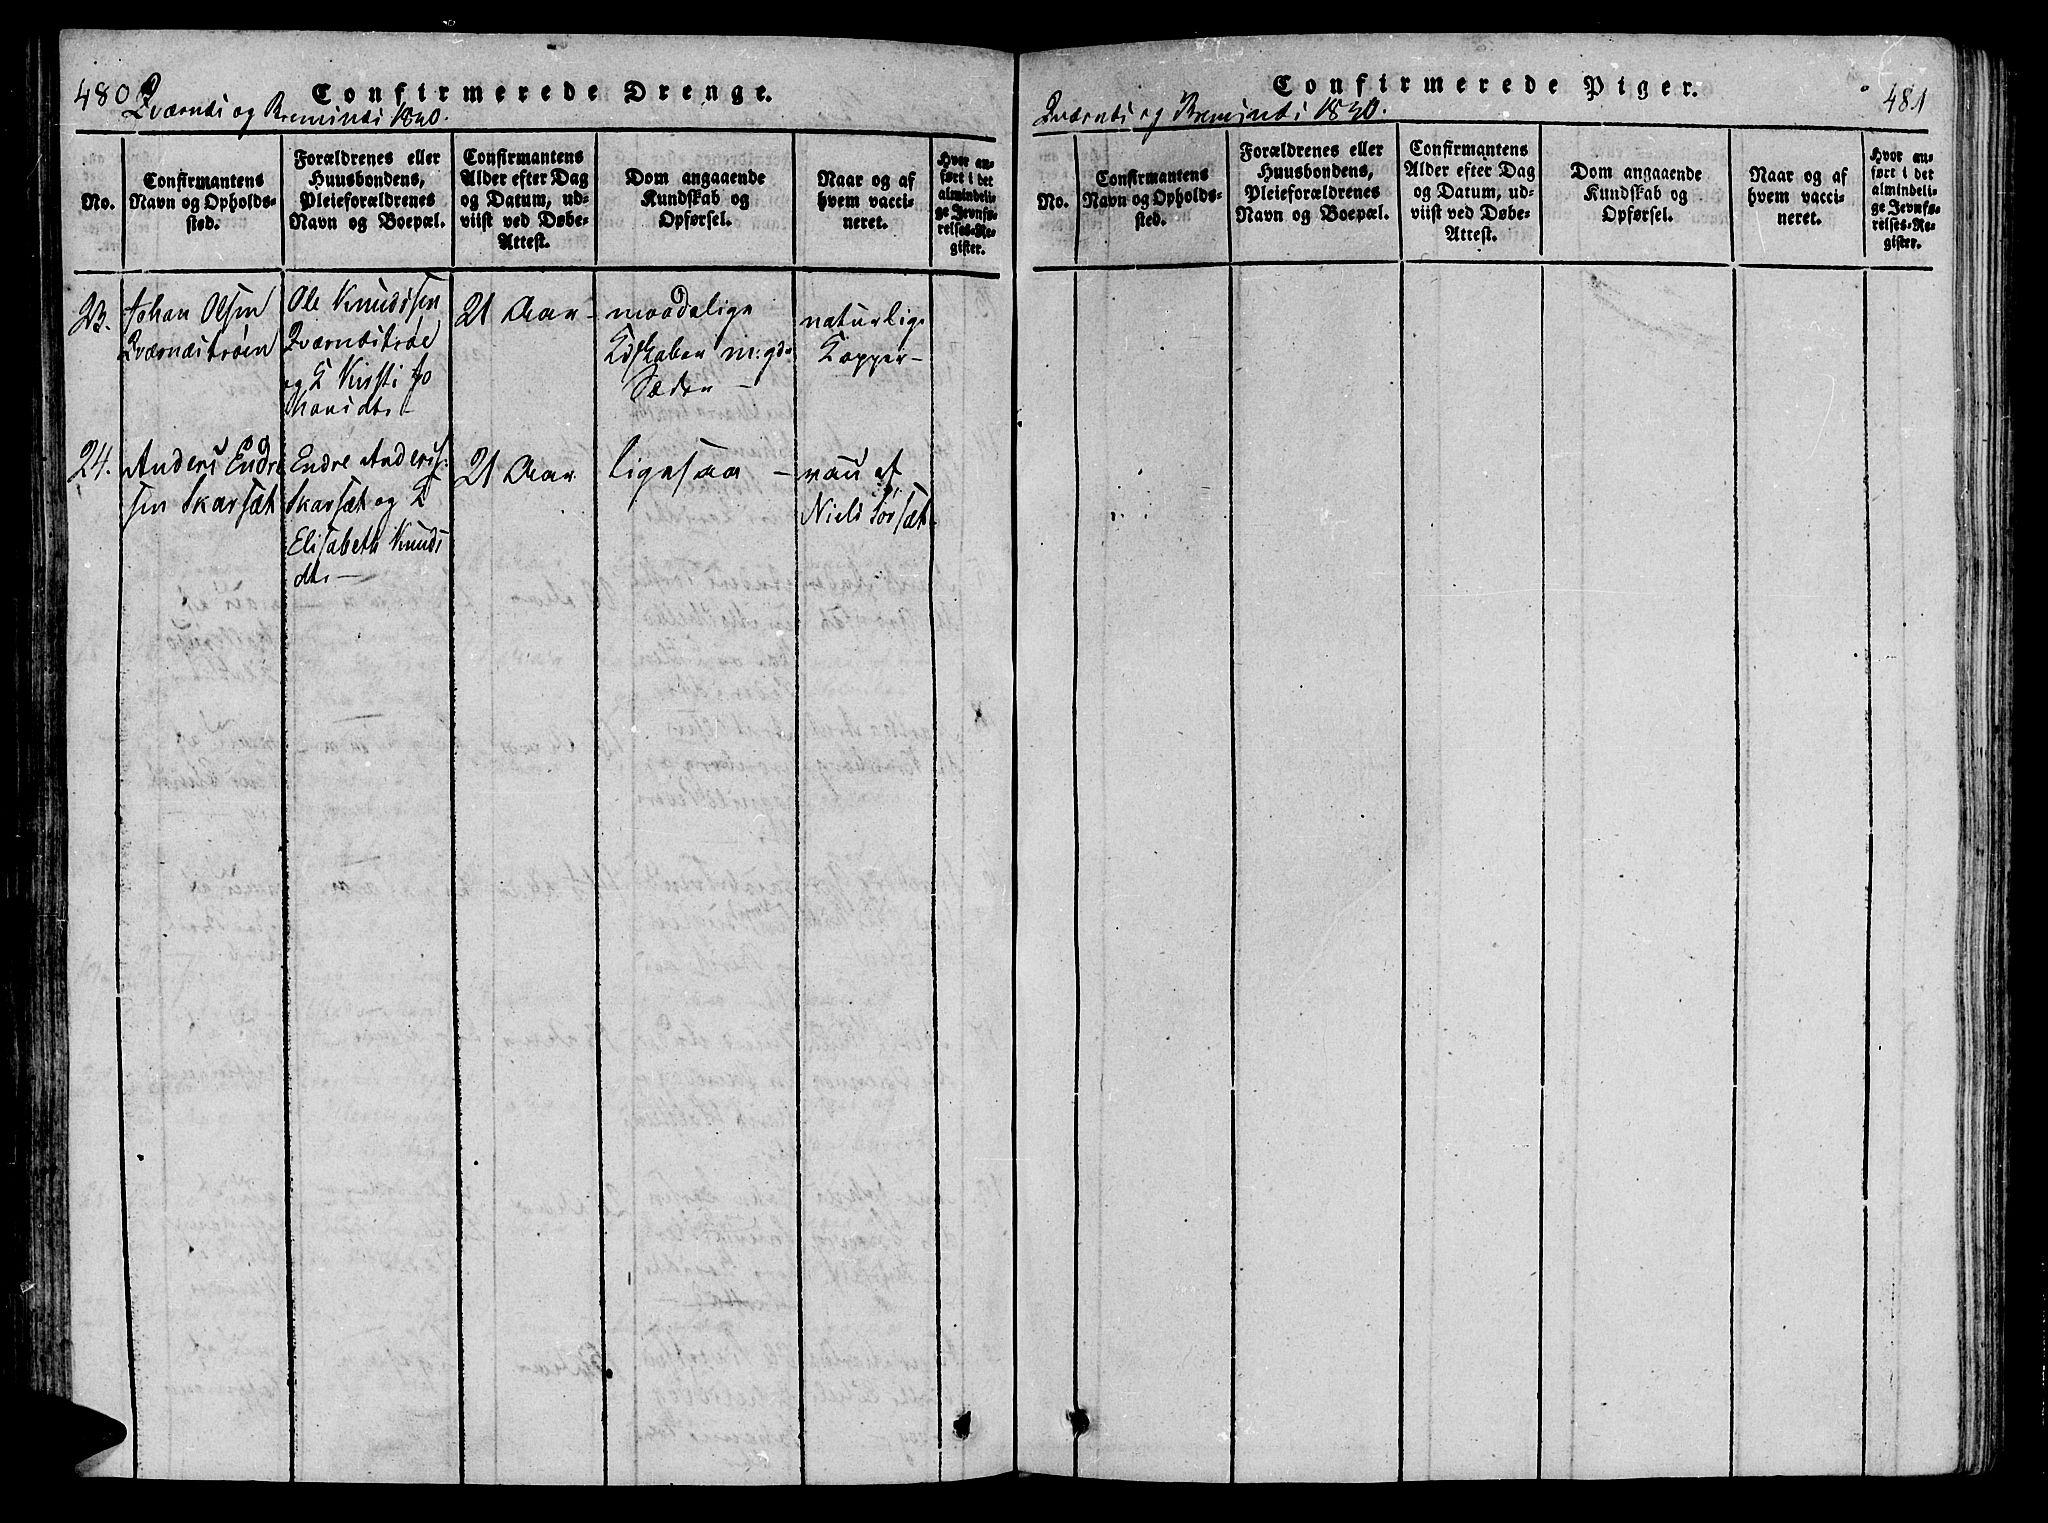 480
Confirmerede Drenge.
Qværnæs og Bremsnæs 1820.
No.
Confirmantens
Navn og Opholds-
sted.
Forældrenes eller
Huusbondens,
Pleieforældrenes
Navn og Boepæl.
Confirmantens
Alder efter Dag
og Datum, ud-
viist ved Døbe-
Attest.
Dom angaaende
Kundskab og
Opførsel.
Naar og af
hvem vacci-
neret.
Hvor an-
ført i det
almindeli-
ge Jevnfø-
relses-Re-
gister.
23.
Johan Olsen
Qværnæstrøen
Ole Knudssen
Qværnæstrøe
og K Kirsti Jo
hansdtr
21 Aar
maadelige
Kdskaber
Sæder
naturlige
Kopper
24.
Anders Endre
sen Skarsæt
Endre Anderss.
Skarsæt og K
Elisabeth Knuds
dtr
21 Aar
ligesaa
vac af
Niels Sørsæt
Confirmerede Piger.
481
Qværnæs og Bremsnæs 1820.
No.
Confirmantens
Navn og Opholds-
sted.
Forældrenes eller
Huusbondens,
Pleieforældrenes
Navn og Boepæl.
Confirmantens
Alder efter Dag
og Datum, ud-
viist ved Døbe-
Attest.
Dom angaaende
Kundskab og
Opførsel.
Naar og af
hvem vacci-
neret.
Hvor an-
ført i det
almindeli-
ge Jevnfø-
relses-Re-
gister.